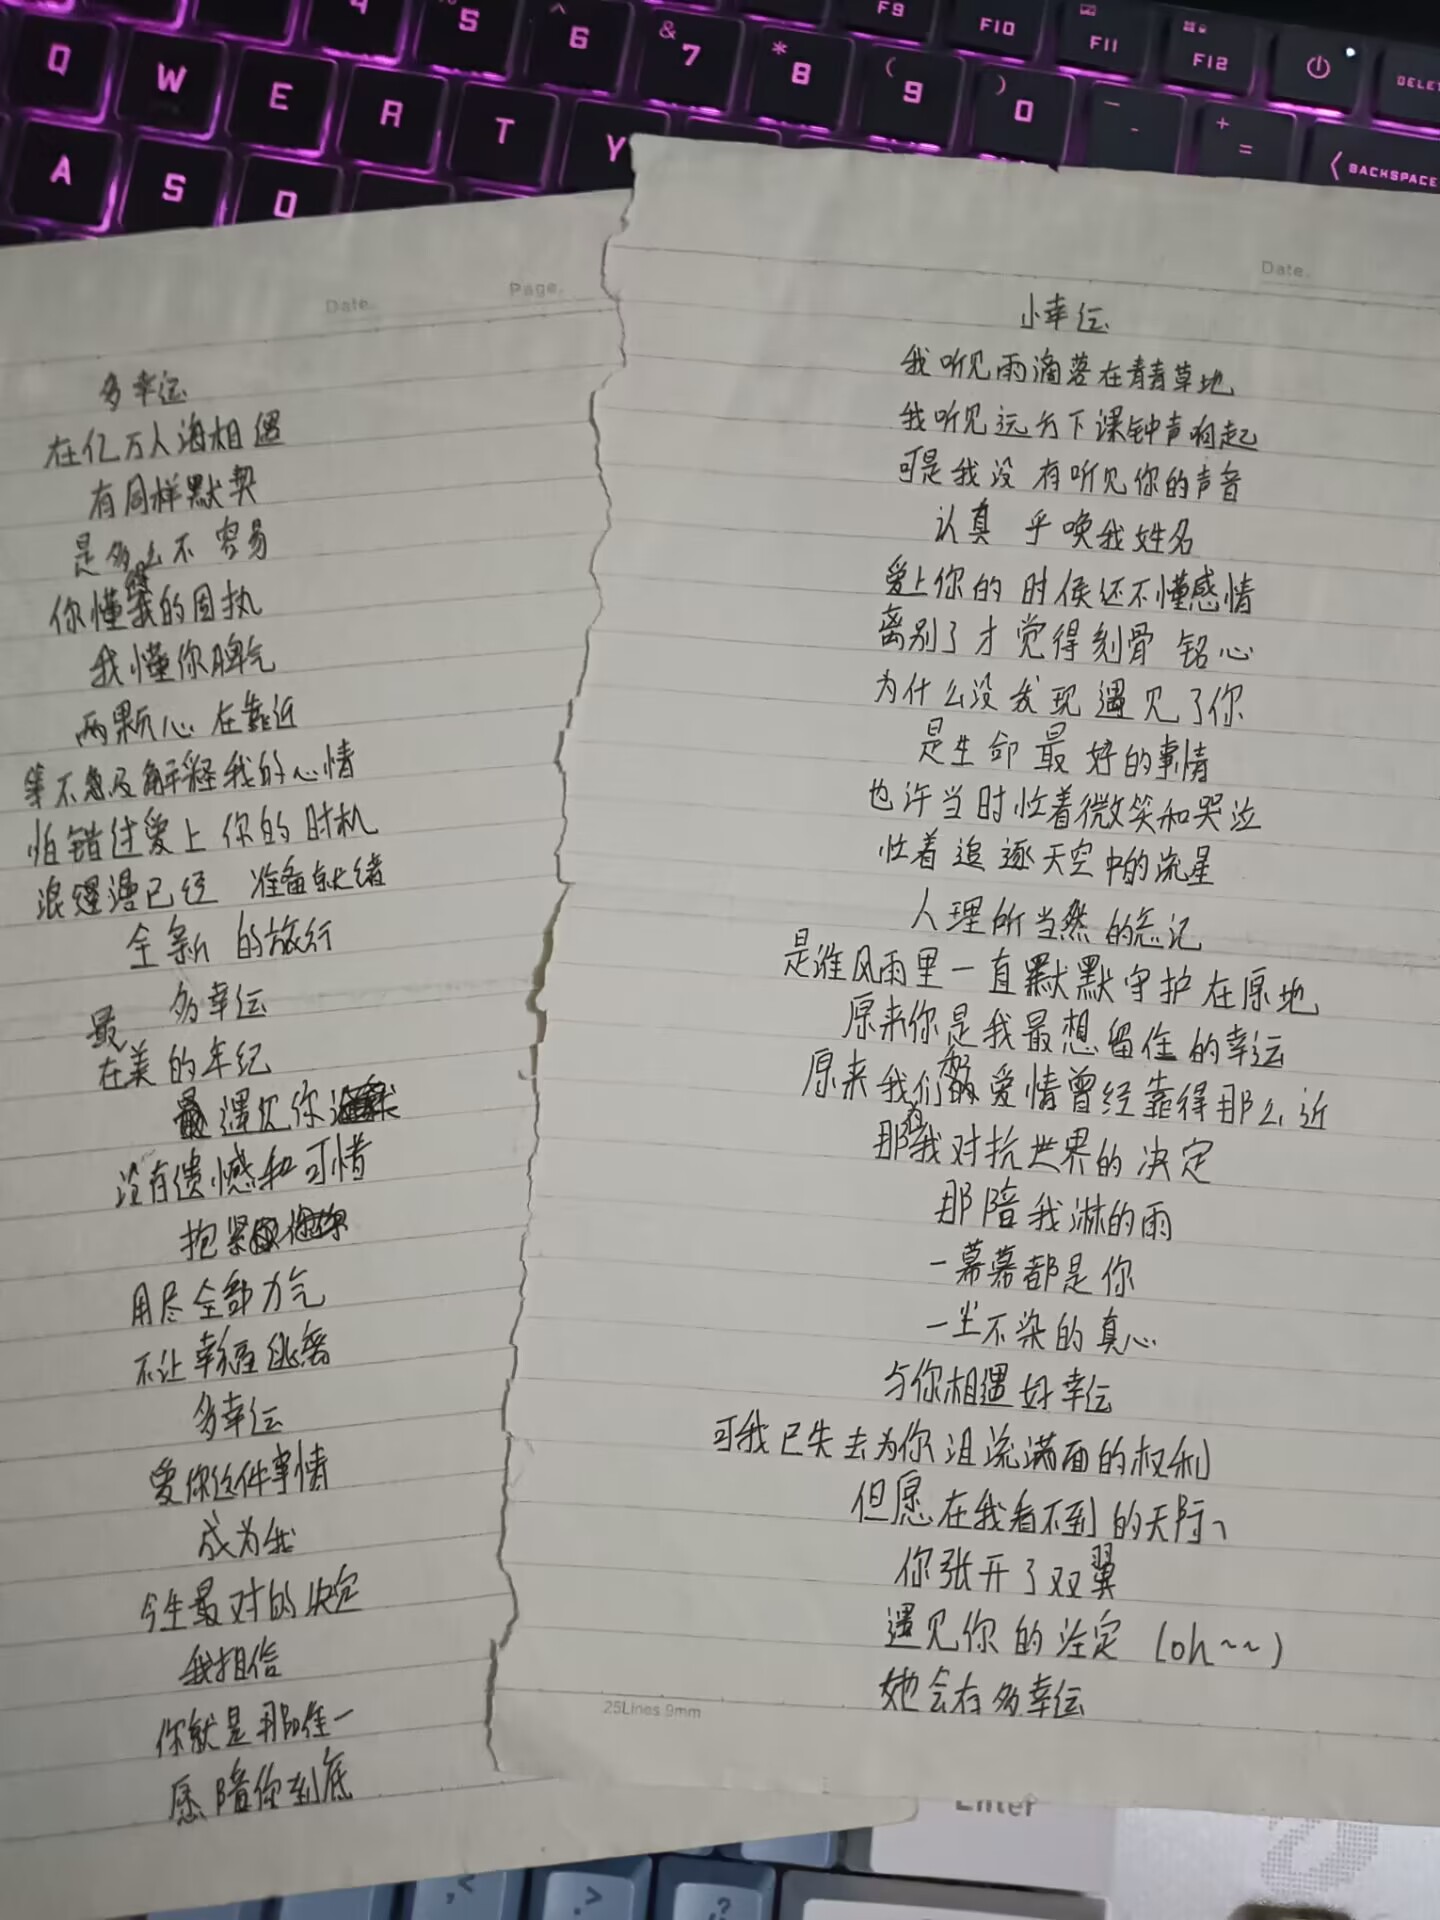 5
^ 6
& 7
* 8
( 9
) 0
F9
F10
F11
F12
DELET
Q W E R T Y
_ -
+ =
BACKSPACE
A S D
Date.
Page.
多幸运
在亿万人海相遇
有同样默契
是多么不容易
你懂得我的固执
我懂你脾气
两颗心在靠近
等不急及解释我的心情
怕错过爱上你的时机
浪漫已经 准备就绪
全新的旅行
多幸运
在最美的年纪
遇见你
没有遗憾和可惜
抱紧
用尽全部力气
不让幸福逃离
多幸运
爱你这件事情
成为我
今生最对的决定
我相信
你就是那唯一
愿陪你到底
Date.
小幸运
我听见雨滴落在青青草地
我听见远方下课钟声响起
可是我没有听见你的声音
认真 乎唤我姓名
爱上你的时候还不懂感情
离别了才觉得刻骨铭心
为什么没发现遇见了你
是生命最好的事情
也许当时忙着微笑和哭泣
忙着追逐天空中的流星
人理所当然的忘记
是谁风雨里一直默默守护在原地
原来你是我最想留住的幸运
原来我们和爱情曾经靠得那么近
那为我对抗世界的决定
那陪我淋的雨
一幕幕都是你
一尘不染的真心
与你相遇好幸运
可我已失去为你泪流满面的权利
但愿在我看不到的天际
你张开了双翼
遇见你的注定 (oh~~)
她会有多幸运
25Lines 9mm
Enter
, <
. >
?